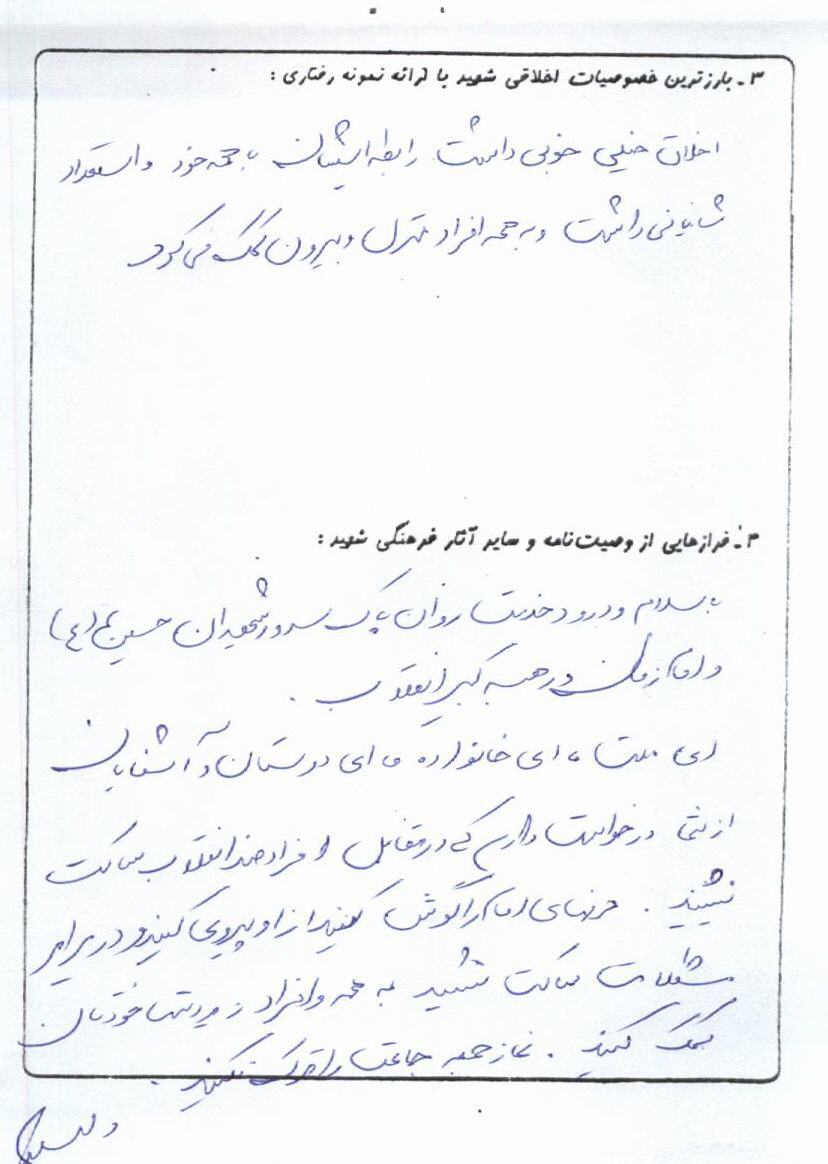 ۳ـ بارزترین خصوصیات اخلاقی شهید با ارائه نمونه رفتاری :
اخلاق خیلی خوبی داشت رابطه ایشان با همه خوب و استعداد
شایانی داشت و به همه افراد منزل و بیرون کمک می کرد
۴ـ فرازهایی از وصیت‌نامه و سایر آثار فرهنگی شهید :
با سلام و درود خدمت روان پاک سرور شهیدان حسین (ع)
و امام زمان و رهبر کبیر انقلاب .
ای ملت ، ای خانواده ، ای دوستان و آشنایان
از شما درخواست دارم که در مقابل افراد ضد انقلاب ساکت
ننشینید . حرفهای امام را گوش کنید از او پیروی کنید و در برابر
مشکلات ساکت ننشینید به همه و افراد زیر دست خودتان
کمک کنید . نماز جمعه جماعت را ترک نکنید .
والسلام